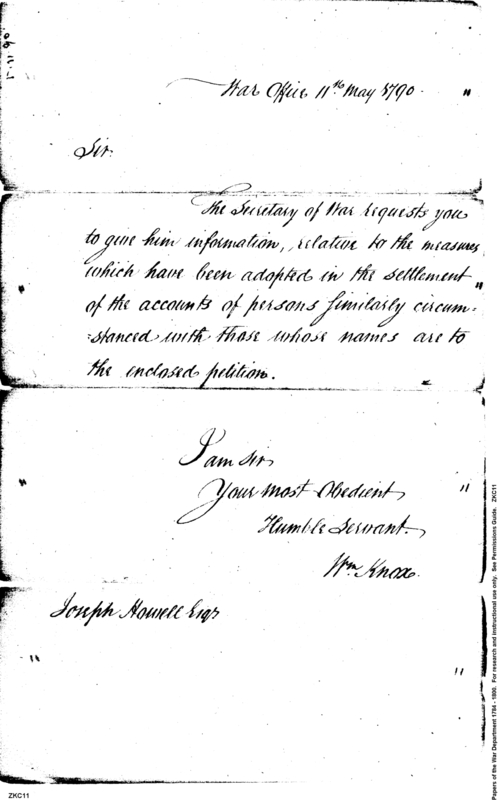 War Office 11th May 1790.
Sir
The Secretary of War requests you
to give him information, relative to the measures
which have been adopted in the settlement
of the accounts of persons similarly circum=
=stanced with those whose names are to
the enclosed petition.
I am Sir
Your most Obedient
Humble Servant.
Wm Knox
Joseph Howell Esqr
ZKC11
Papers of the War Department 1784 - 1800. For research and instructional use only. See Permissions Guide. ZKC11